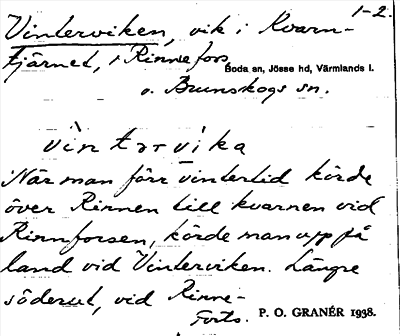 1-2.
Vinterviken, vik i Kvarn-
tjärnet, i Rinnefors,
Boda sn, Jösse hd, Värmlands l.
o. Brunskogs sn.
vìntərvìka
När man förr vintertid körde
över Rinnen till kvarnen vid
Rinnforsen, körde man upp på
land vid Vinterviken. Längre
söderut, vid Rinne-
Forts. P. O. GRANÉR 1938.